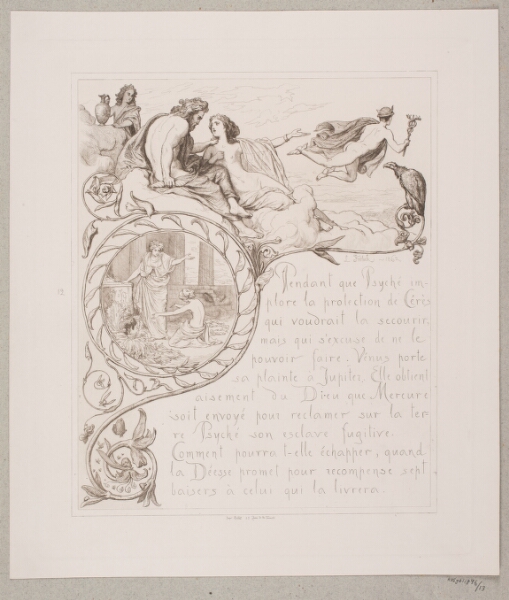 Pendant que Psyché im-
plore la protection de Cérès
qui voudrait la secourir,
mais qui s'excuse de ne le
pouvoir faire. Vénus porte
sa plainte à Jupiter. Elle obtient
aisement du Dieu que Mercure
soit envoyé pour reclamer sur la ter-
re Psyché son esclave fugitive.
Comment pourra t-elle échapper, quand
la Déesse promet pour recompense sept
baisers à celui qui la livrera.